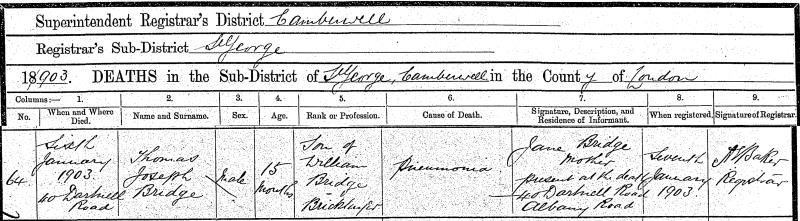 Superintendent Registrar's District Camberwell
Registrar's Sub-District St George
18 1903. DEATHS in the Sub-District of St George, Camberwell in the County of London
Columns:— 1. 2. 3. 4. 5. 6. 7. 8. 9.
No. When and Where Died. Name and Surname. Sex. Age. Rank or Profession. Cause of Death. Signature, Description, and Residence of Informant. When registered. Signature of Registrar.
64 Sixth January 1903. 40 Dartnell Road
Thomas Joseph Bridge
Male
15 months
Son of William Bridge Bricklayer
Pneumonia
Jane Bridge Mother present at the death 40 Dartnell Road Albany Road
Seventh January 1903.
Baker Registrar